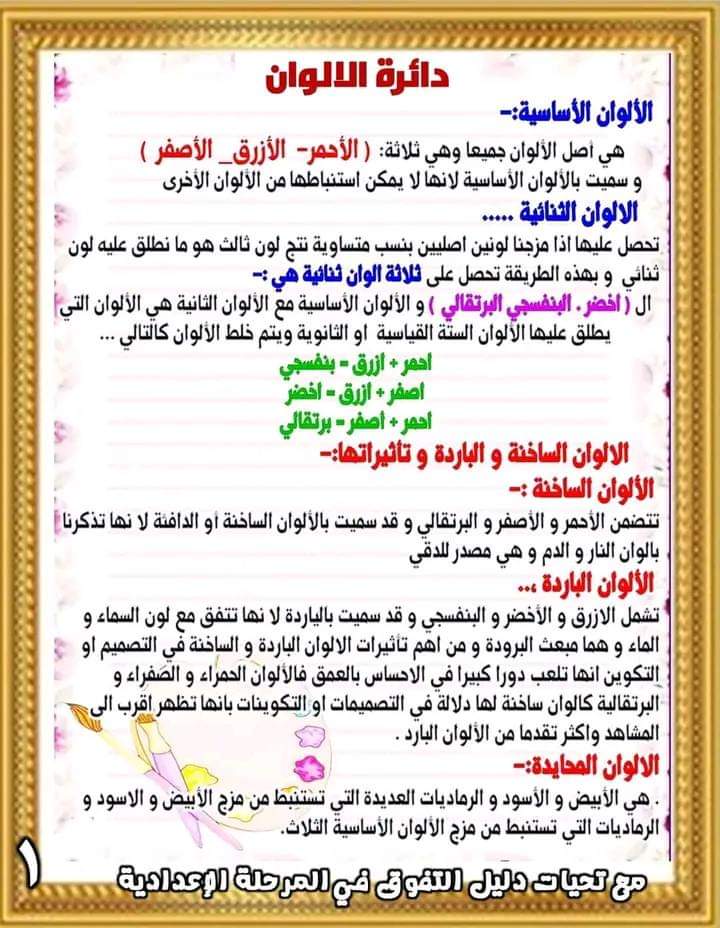 دائرة الالوان
الألوان الأساسية:-
هي أصل الألوان جميعا وهي ثلاثة: ( الأحمر- الأزرق_ الأصفر )
و سميت بالألوان الأساسية لانها لا يمكن استنباطها من الألوان الأخرى
الالوان الثنائية .....
تحصل عليها اذا مزجنا لونين اصليين بنسب متساوية نتج لون ثالث هو ما نطلق عليه لون
ثنائي و بهذه الطريقة تحصل على ثلاثة الوان ثنائية هي :-
ال ( أخضر . البنفسجي البرتقالي ) و الألوان الأساسية مع الألوان الثانية هي الألوان التي
يطلق عليها الألوان الستة القياسية او الثانوية ويتم خلط الألوان كالتالي ...
أحمر + أزرق = بنفسجي
اصفر + ازرق = أخضر
أحمر + أصفر = برتقالي
الالوان الساخنة و الباردة و تأثيراتها:-
الألوان الساخنة :-
تتضمن الأحمر و الأصفر و البرتقالي و قد سميت بالألوان الساخنة أو الدافئة لا نها تذكرنا
بالوان النار و الدم و هي مصدر للدقي
الألوان الباردة ،..
تشمل الازرق و الأخضر و البنفسجي و قد سميت بالباردة لا نها تتفق مع لون السماء و
الماء و هما مبعث البرودة و من اهم تأثيرات الالوان الباردة و الساخنة في التصميم او
التكوين انها تلعب دورا كبيرا في الاحساس بالعمق فالألوان الحمراء و الصفراء و
البرتقالية كالوان ساخنة لها دلالة في التصميمات او التكوينات بانها تظهر اقرب الى
المشاهد واكثر تقدما من الألوان البارد .
الالوان المحايدة:-
. هي الأبيض و الأسود و الرماديات العديدة التي تستنبط من مزج الأبيض و الاسود و
الرماديات التي تستنبط من مزج الألوان الأساسية الثلاث.
مع تحيات دليل التفوق في المرحلة الإعدادية
١